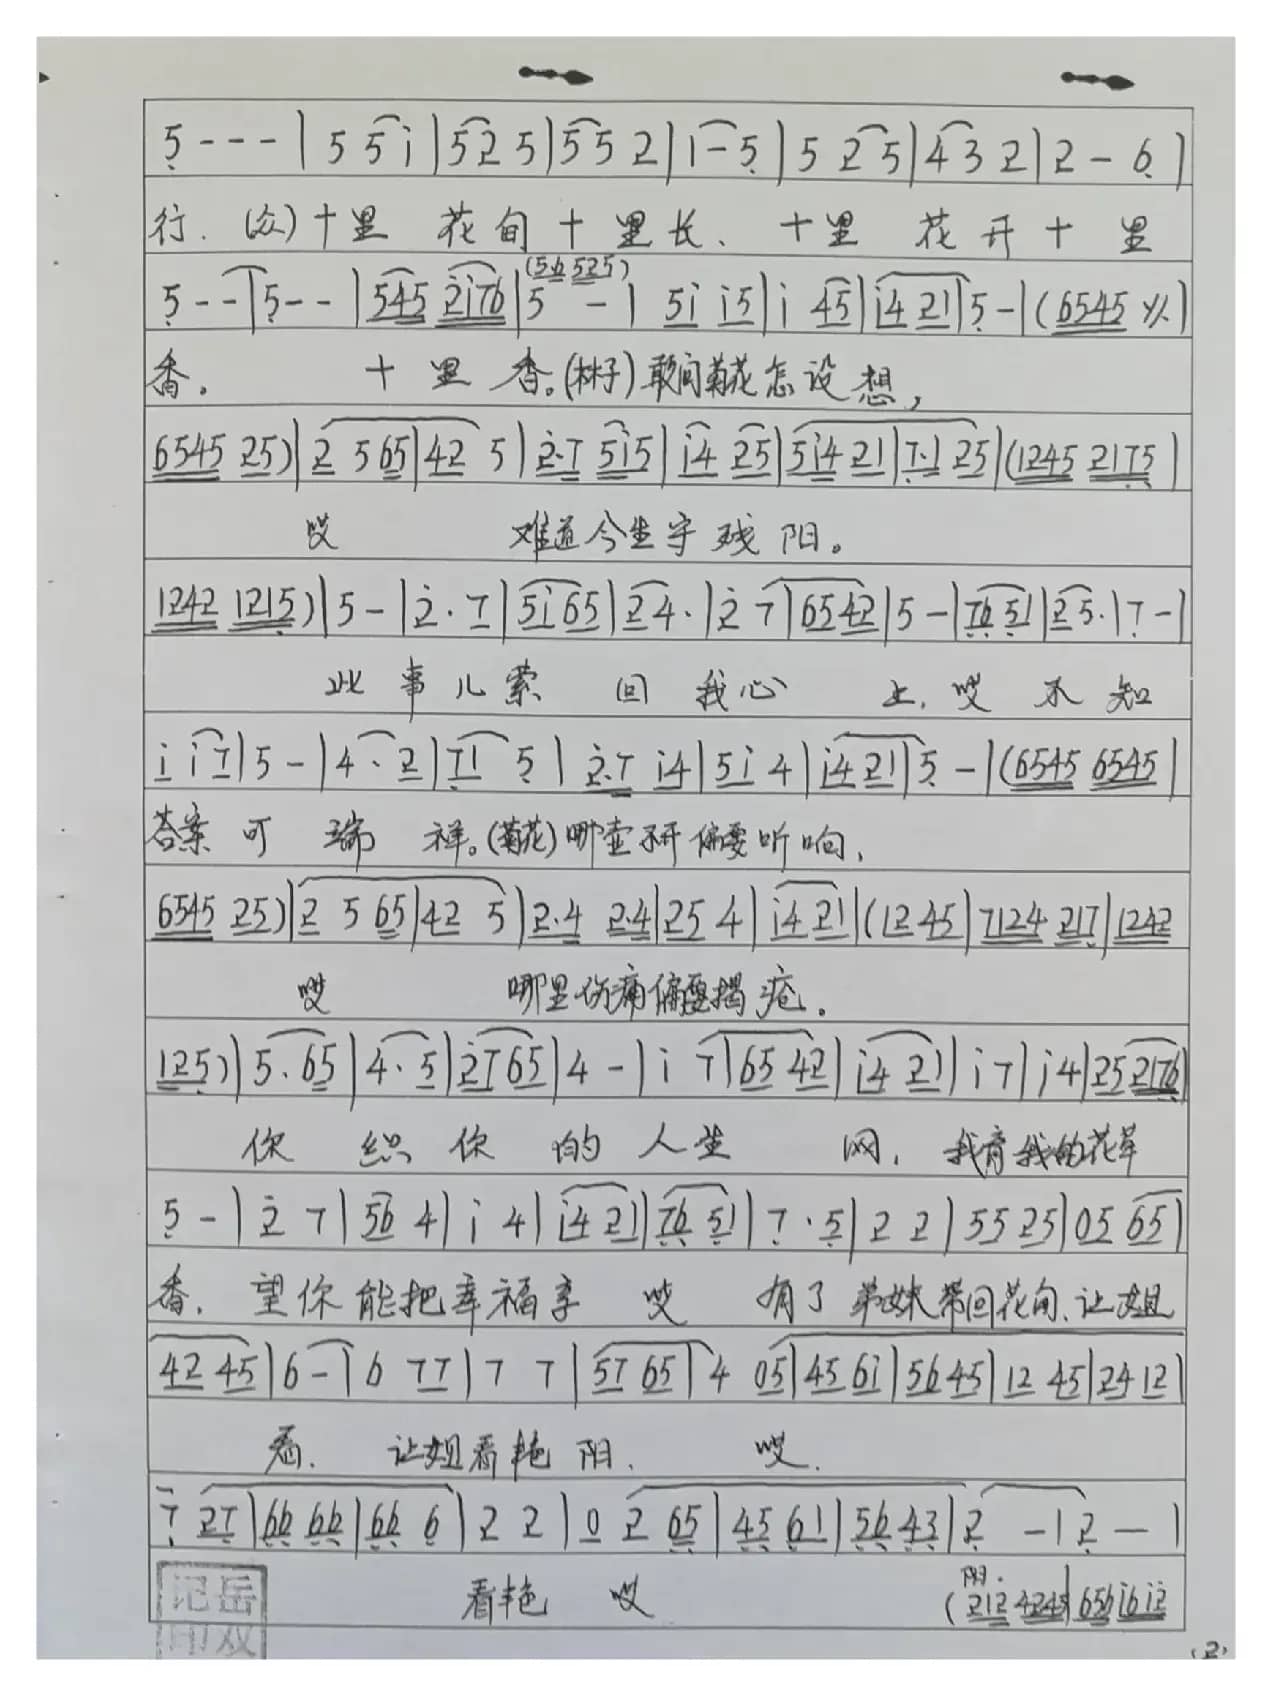 5 - - - | 5 5 i | 5 2 5 | 5 5 2 | 1 - 5 | 5 2 5 | 4 3 2 | 2 - 6 |
行. (众) 十里 花旬十里长、十里 花开十里
(56 525)
5 - - | 5 - - | 545 2i76 | 5 - | 5i i5 | i 45 | i4 21 | 5 - | (6545 〃 |
香。 十里香。(林子) 敢问菊花怎设想,
6545 25) | 2 5 65 | 42 5 | 2·7 5i5 | i4 25 | 5i4 21 | 7·1 25 | (1245 2175 |
哎 难道今生守残阳。
1242 1215) | 5 - | 2 · 7 | 5i65 | 24· | 2 7 | 6542 | 5 - | 76 51 | 25· | 7 - |
此事儿萦回我心上, 哎 不知
i i7 | 5 - | 4 · 2 | 71 5 | 2·7 i4 | 5i 4 | i4 21 | 5 - | (6545 6545 |
答案可瑞祥。(菊花) 哪壶不开偏要听响,
6545 25) | 2 5 65 | 42 5 | 2·4 2·4 | 25 4 | i4 21 | (12 45 | 7124 217 | 1242
哎 哪里伤痛偏要揭疮。
125) | 5·65 | 4·5 | 2765 | 4 - | i 7 | 65 42 | i4 21 | i7 | i4 | 25 2176 |
你织你的人生网, 我育我的花草
5 - | 2 7 | 56 4 | i 4 | i4 21 | 76 51 | 7 · 5 | 2 2 | 55 25 | 05 65 |
香, 望你能把幸福享 哎 有了弟妹带回花旬、让姐
42 45 | 6 - | 6 77 | 7 7 | 57 65 | 4 05 | 45 6i | 5645 | 12 45 | 24 12 |
看. 让姐看艳阳. 哎.
7 27 | 66 66 | 66 6 | 2 2 | 0 2 65 | 45 61 | 56 43 | 2 - | 2 - |
看艳 哎 阳.
(212 4245 | 656 i6 i2
记岳
印双
(2)